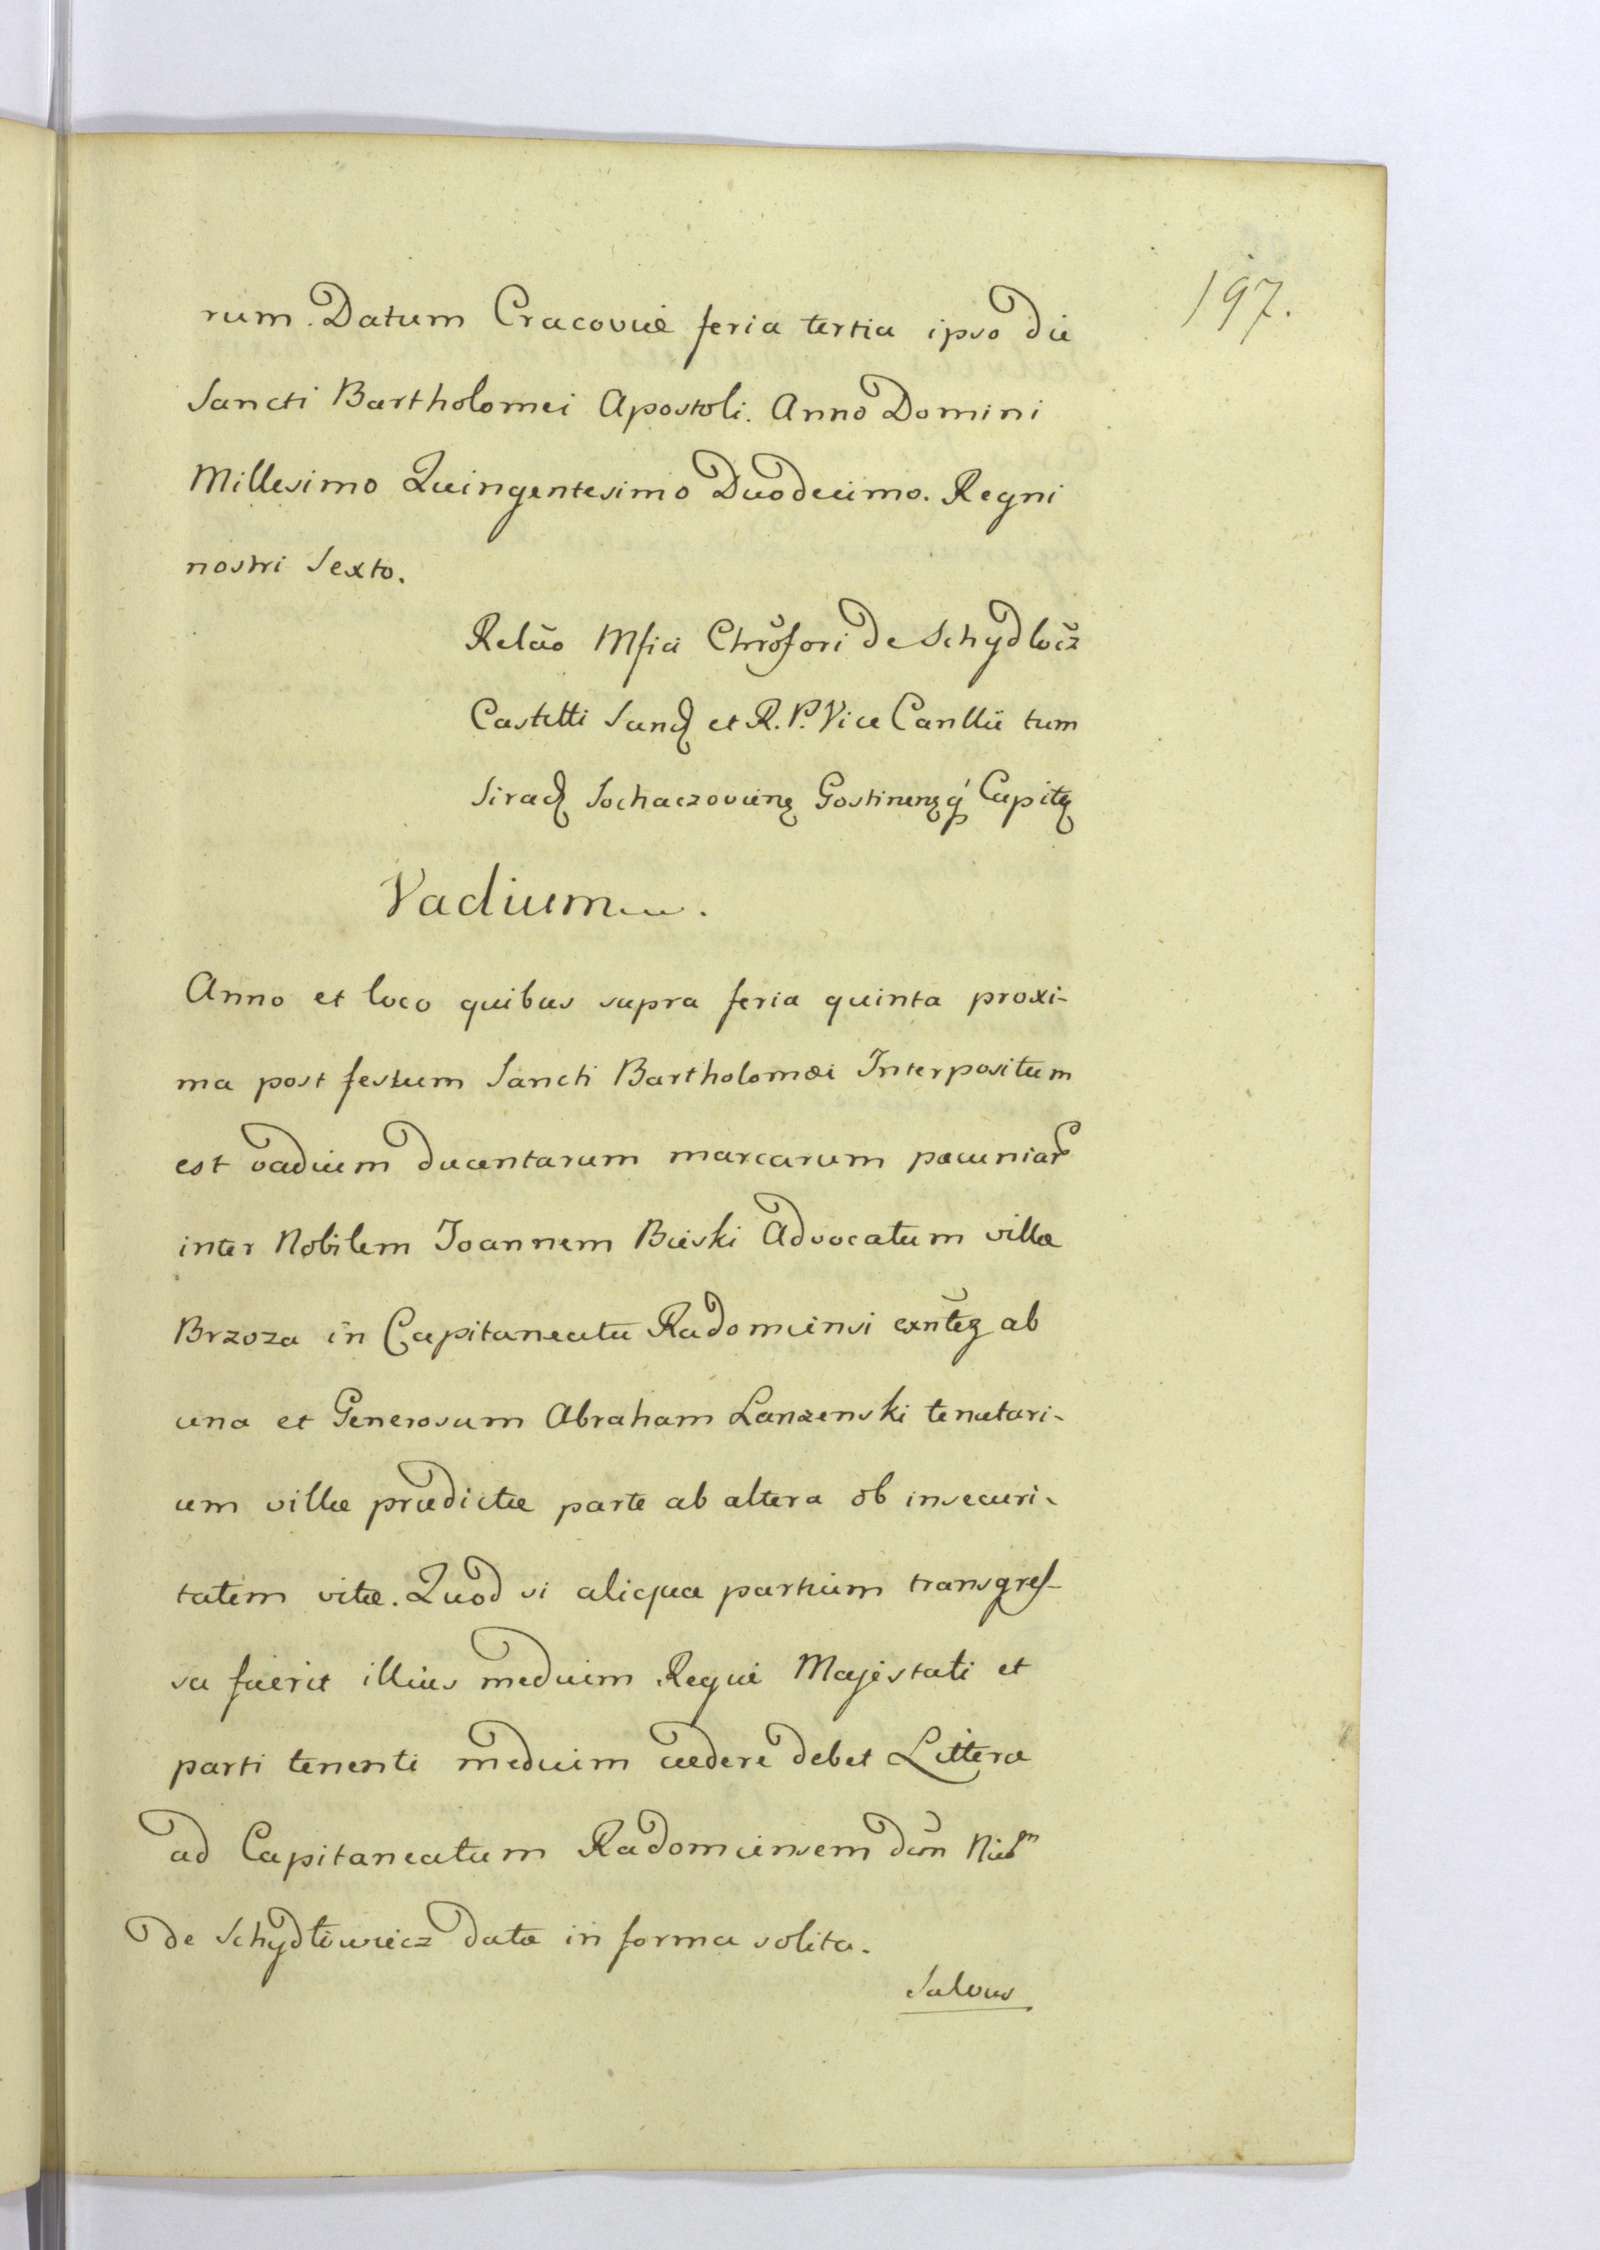 197.
rum. Datum Cracoviæ feria tertia ipso die
Sancti Bartholomei Apostoli. Anno Domini
Millesimo Quingentesimo Duodecimo. Regni
nostri Sexto.
Relāo Mfici Chrōfori de Schydlocz
Castelli Sand et R. P. Vice Canllii tum
Sirad Sochaczovienʒ Gostinenʒ q́ Capitʒ
Vadium.
Anno et loco quibus supra feria quinta proxi-
ma post festum Sancti Bartholomæi Interpositum
est vadium ducentarum marcarum pecuniar
inter Nobilem Joannem Bieski Advocatum villæ
Brzoza in Capitaneatu Radomiensi exn̄teʒ ab
una et Generosum Abraham Lanzenski tenutari-
um villæ prædictæ parte ab altera ob insecuri-
tatem vitæ. Quod si aliqua partium transgres-
sa fuerit illius medium Regiæ Majestati et
parti tenenti medium cædere debet Litteræ
ad Capitaneatum Radomiensem dūm Nicolm
de Schydlowiecz datæ in forma solita.
Salvus